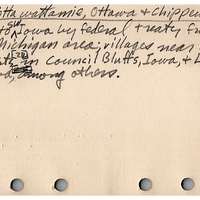 itta wattamie, Ottawa & Chippew
to SW Iowa by federal treaty fr
Michigan area; villages near
in Council Bluffs, Iowa, & L
among others.